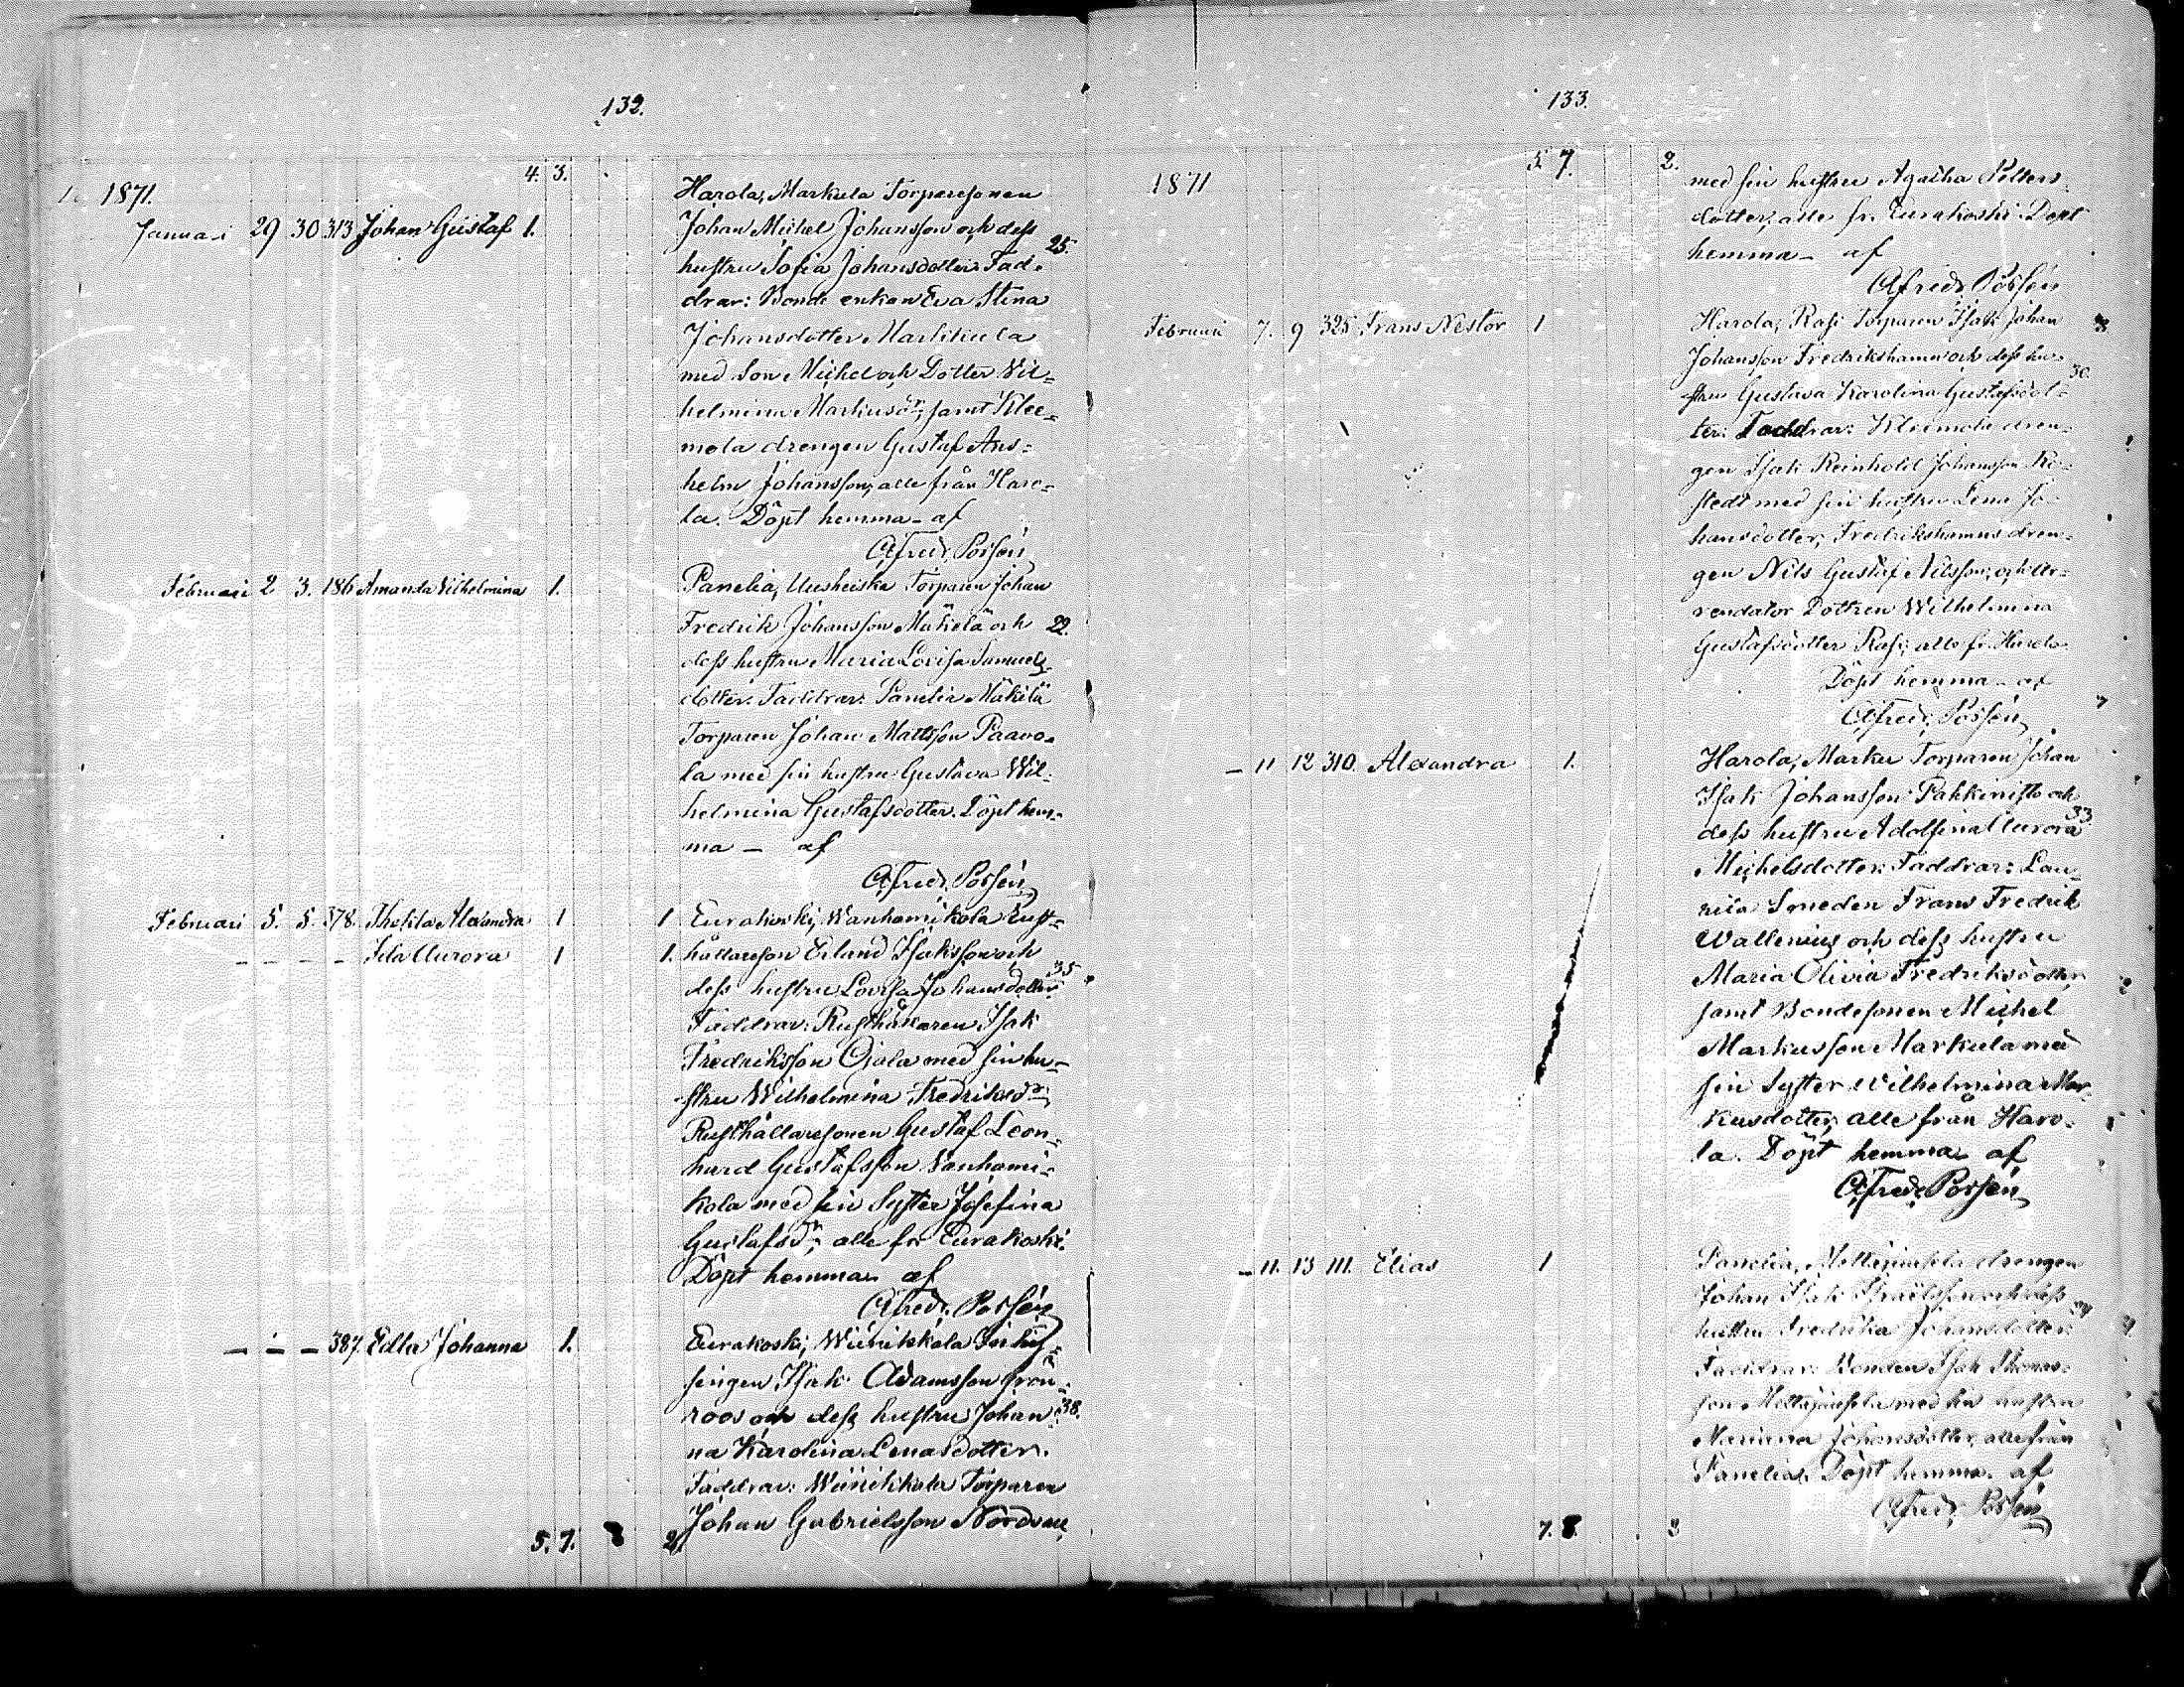 132.
4. 3.
1871.
Harola, Markula Torparesonen
Januari 29 30 313 Johan Gustaf 1. Johan Michel Johansson och dess
hustru Sofia Johansdotter. Fad- 25.
drar: Bonde enkan Eva Stina
Johansdotter Markkula
med Son Michel och Dotter Wil-
helmina Markusdr, samt Klee-
mola drengen Gustaf Ans-
helm Johansson, alle från Haro-
la. Döpt hemma - af
Alfred Porsén
Februari 2 3. 186 Amanda Vilhelmina 1. Panelia, Uusheiska Torparen Johan
Fredrik Johansson Mäkelä och 22.
dess hustru Maria Lovisa Samuels-
dotter. Faddrar: Panelia Mäkilä
Torparen Johan Mattsson Paavo-
la med sin hustru Gustava Wil-
helmina Gustafsdotter. Döpt hem-
ma - af
Alfred Porsén
Februari 5. 5. 378. Thekla Alexandra 1 1 Eurakoski, Wanhamikola Rust-
- - - - Ida Aurora 1 1. hållareson Erland Isaksson och
dess hustru Lovisa Johansdotter 35
Faddrar: Rusthållaren Isak
Fredriksson Ojala med sin hu-
stru Wilhelmina Fredriksdr,
Rusthållaresonen Gustaf Leon-
hard Gustafsson Vanhami-
kola med sin Syster Josefina
Gustafsdr, alle fr Eurakoski.
Döpt hemma af
Alfred Porsén
- - - 387. Edla Johanna 1. Eurakoski, Wiinikkala Inhy-
singen Isak Adamsson Grön-
roos och dess hustru Johan- 38.
na Karolina Lenasdotter.
Faddrar: Wiinikkala Torparen
Johan Gabrielsson Nordvall
5. 7. 2.
133.
5. 7. 2.
1871
med sin hustru Agatha Petters-
dotter, alle fr. Eurakoski. Döpt
hemma - af
Alfred Porsén
Februari 7. 9 325 Frans Nestor 1 Harola, Rasi Torparen Isak Johan
Johansson Fredrikshamn och dess hu- 30.
stru Gustava Karolina Gustafsdot-
ter. Faddrar: Kleimola dren-
gen Isak Reinhold Johansson
med sin hustru Lena Jo-
hansdotter, Fredrikshamns dren-
gen Nils Gustaf Nilsson, och Ar-
rendator Dottren Wilhelmina
Gustafsdotter Rasi, alle fr. Harola.
Döpt hemma - af
Alfred Porsén
- 11 12 310. Alexandra 1. Harola, Marku Torparen Johan
Isak Johansson Pakkinisto och
dess hustru Adolfina Aurora 33.
Michelsdotter. Faddrar: Lau-
rila Smeden Frans Fredrik
Wallenius och dess hustru
Maria Olivia Fredriksdotter,
samt Bondesonen Michel
Markusson Markula med
sin Syster Wilhelmina Mar-
kusdotter, alle från Haro-
la. Döpt hemma af
Alfred Porsén
- 11. 13 111. Elias 1 Panelia, drengen
Johan Isak Israelsson och dess
hustru Fredrika Johansdotter.
Faddrar: Bonden Isak Thomas-
son med sin hustru
Mariana Johansdotter, alle från
Panelia. Döpt hemma. af
Alfred Porsén
7. 8. 3